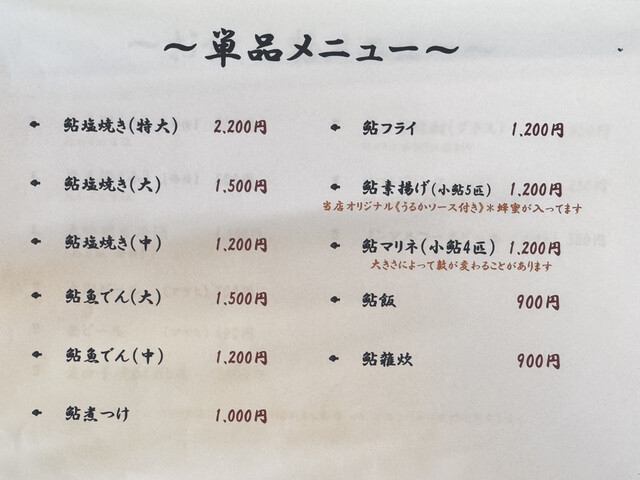 ～単品メニュー～
鮎塩焼き(特大) 2,200円
鮎塩焼き(大) 1,500円
鮎塩焼き(中) 1,200円
鮎魚でん(大) 1,500円
鮎魚でん(中) 1,200円
鮎煮つけ 1,000円
鮎フライ 1,200円
鮎素揚げ(小鮎5匹) 1,200円
当店オリジナル《うるかソース付き》＊蜂蜜が入ってます
鮎マリネ(小鮎4匹) 1,200円
大きさによって数が変わることがあります
鮎飯 900円
鮎雑炊 900円